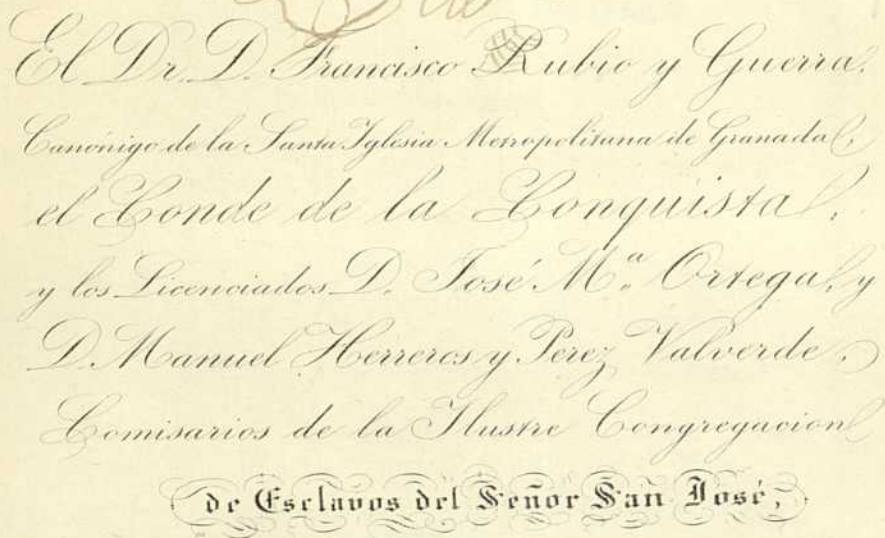 El Dr. D. Francisco Rubio y Guerra,
Canónigo de la Santa Iglesia Metropolitana de Granada,
el Conde de la Conquista,
y los Licenciados D. José M.ª Ortega, y
D. Manuel Herreros y Perez Valverde,
Comisarios de la Ilustre Congregacion
de Esclavos del Señor San José,